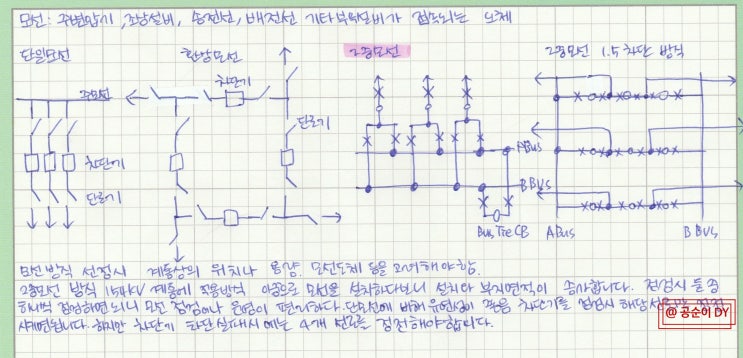 모선: 주변압기, 조상설비, 송전선, 배전선 기타부속설비가 접속되는 도체
단일모선
환상모선
2중모선
2중모선 1.5차단 방식
차단기
주모선
단로기
차단기
단로기
A Bus
B Bus
Bus Tie CB
A Bus
B Bus
모선 방식 선정시 계통상의 위치나 용량, 모선도체 등을 고려해야함.
2중모선 방식 154kV 계통에 적용방식 이중으로 모선을 설치하다보니 설치와 부지면적이 증가합니다. 점검시 등 중
하나씩 점검하면 되니 모선 점검이나 운영이 편리하다. 단모선에 비해 유연성이 좋음 차단기를 점검시 해당
시켜면됩니다. 하지만 차단기 차단실패시에는 4개 선로를 정전해야합니다.
@ 공순이 DY